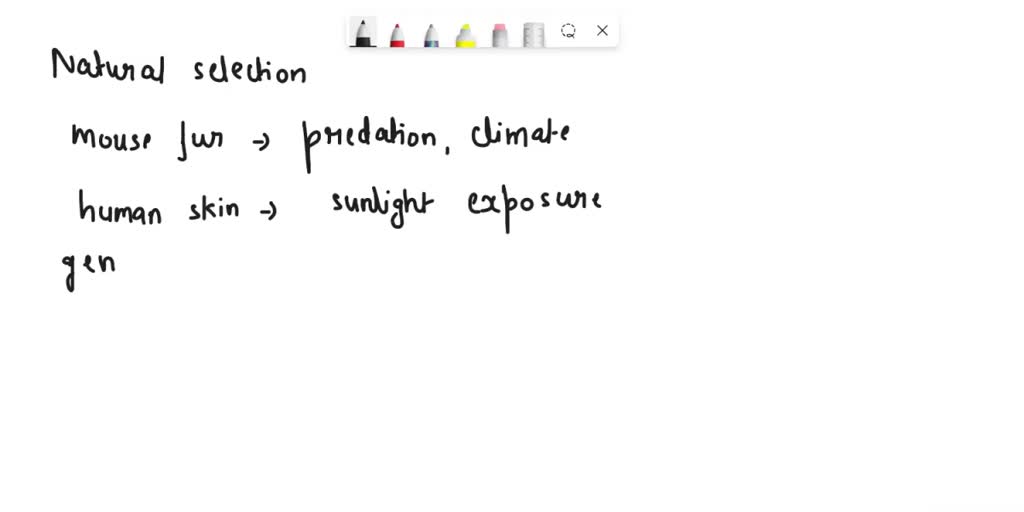 Natural selection
mouse fur → predation, climate
human skin → sunlight exposure
gen